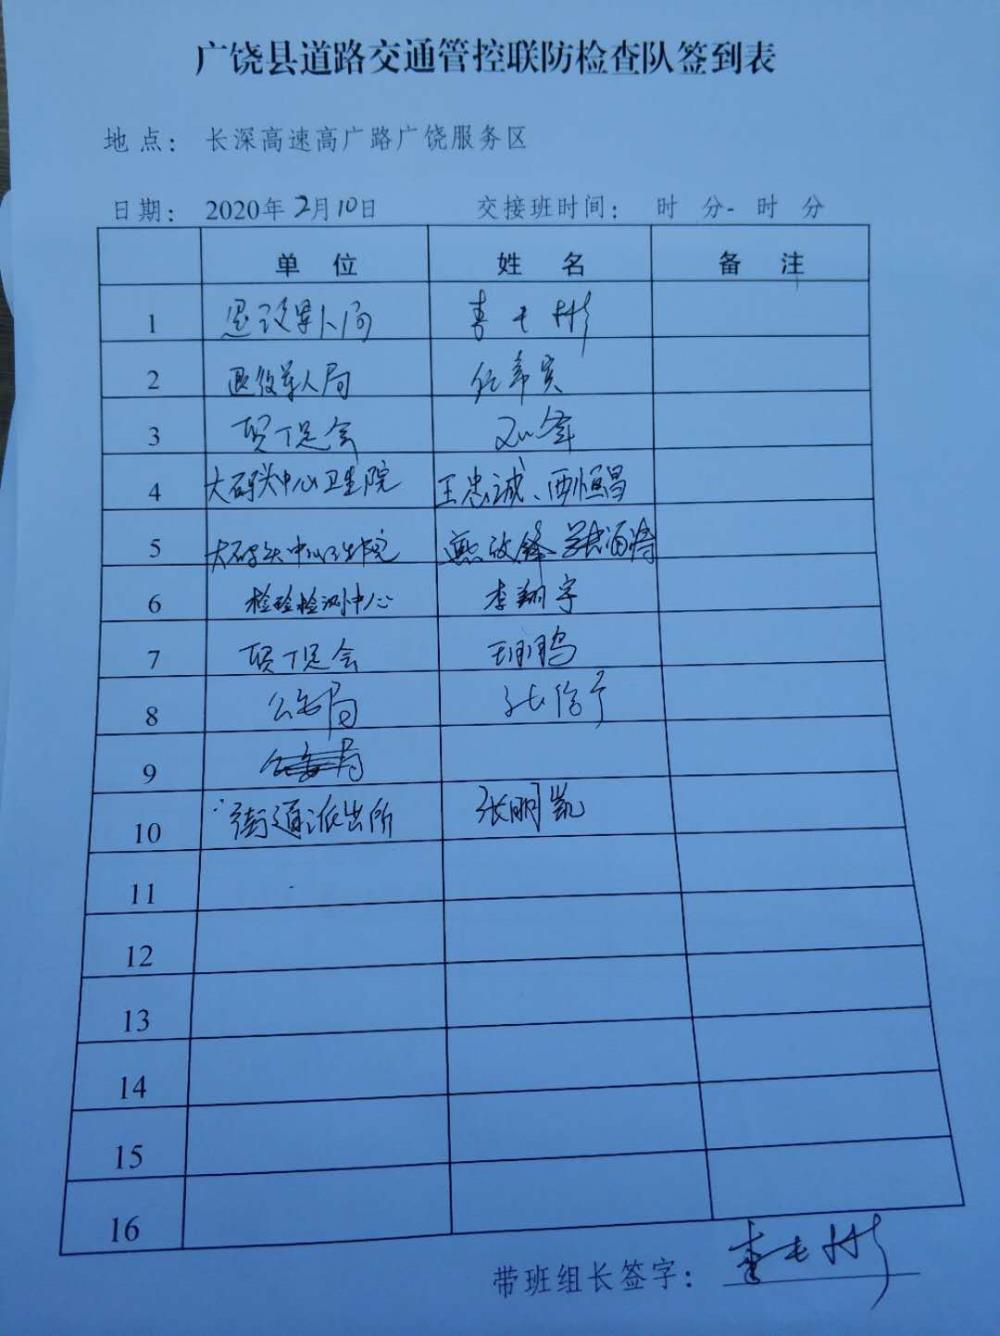 广饶县道路交通管控联防检查队签到表
地点： 长深高速高广路广饶服务区
日期： 2020年2月10日 交接班时间： 时 分- 时 分
单 位 姓 名 备 注
1 退役军人局
2 退役军人局 任希宾
3 贸促会
4 大码头中心卫生院 王忠诚、西恒昌
5 大码头中心卫生院
6 检验检测中心 李翔宇
7 贸促会
8 公安局
9
10 街道派出所 张鹏凯
11
12
13
14
15
16
带班组长签字：